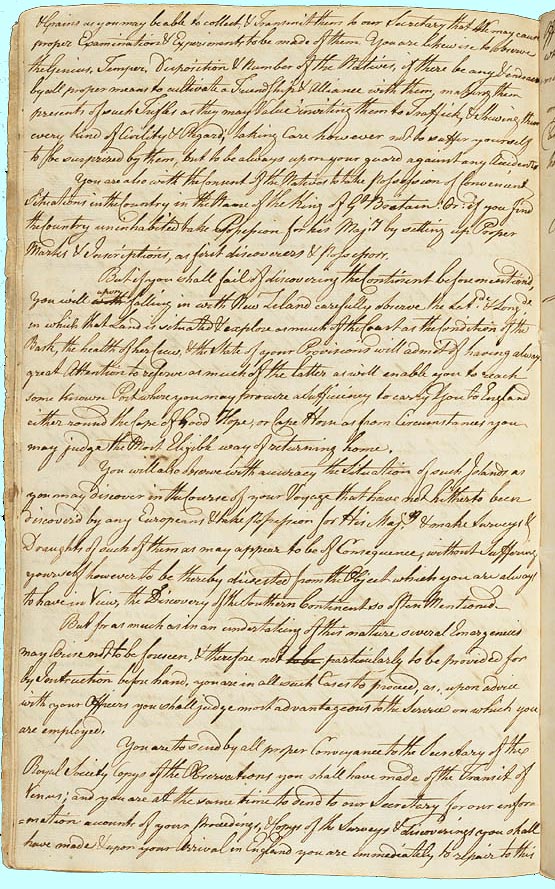 & Grains as you may be able to collect, & Transmit them to our Secretary that We may cause
proper Examination & Experiments to be made of them. You are likewise to observe
the Genius, Temper, Disposition & Number of the Natives, if there be any & endeavour
by all proper means to cultivate a Friendship & Aliance with them, making them
presents of such Trifles as they may Value inviting them to Traffick, & Shewing them
every kind of Civility & Regard, taking Care however not to suffer yourself
to be surprized by them, but to be always upon your guard against any Accidents
You are also with the Consent of the Natives to take Possession of Convenient
Situations in the Country in the Name of the King of Gt. Britain: Or if you find
the Country uninhabited take Possession for his Majty by setting up Proper
Marks & Inscriptions, as first discoverers & Possessors.
But if you shall fail of discovering the Continent beforemention'd
You will upon falling in with New Zeland carefully observe the Latde & Longde
in which that Land is situated & explore as much of the Coast as the Condition of the
Bark, the health of her Crew, & the State of your Provisions will admit of having always
great Attention to reserve as much of the latter as will enable you to reach
some known Port where you may procure a Sufficiency to carry You to England
either round the Cape of Good Hope, or Cape Horn as from Circumstances you
may judge the Most Eligible way of returning home.
You will also observe with accuracy the Situation of such Islands as
you may discover in the Course of your Voyage that have not hitherto been
discover'd by any Europeans & take Possession for His Majty & make Surveys &
Draughts of such of them as may appear to be of Consequence, without Suffering
yourself however to be thereby diverted from the Object which you are always
to have in View, the Discovery of the Southern Continent so often Mentioned
But for as much as in an undertaking of this nature several Emergencies
may Arise not to be foreseen, & therefore not to be particularly to be provided for
by Instruction before hand, you are in all such Cases to proceed, as, upon advice
with your Officers you shall judge most advantageous to the Service on which you
are employed.
You are to send by all proper Conveyance to the Secretary of the
Royal Society Copys of the Observations you shall have made of the Transit of
Venus; and you are at the same time to send to our Secretary for our infor=
=mation accounts of your Proceedings, & Copys of the Surveys & discoverings you shall
have made & upon your Arrival in England you are immediately to repair to this